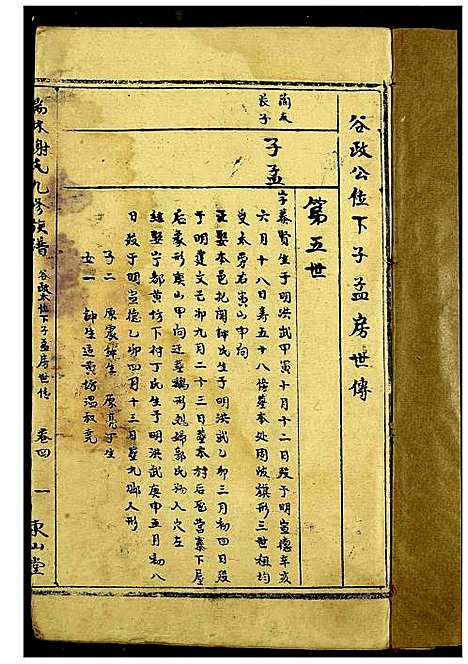 谷政公位下子孟房世傳
第五世
前友
長子
子孟
字養賢生于明洪武甲寅十月十二日歿于明宣德辛亥
六月十八日壽五十八修墓本处周陂旗形三世祖均
受太劳右寅山申向
娶本邑龙阁鍾氏生于明洪武乙卯三月初四日歿
于明建文己卯九月二十三日墓本村后龙营寨下屋
后象形庚山甲向迁墓鵝形媳婦郭氏坳入穴左
継娶宁都黄坊下村丁氏生于明洪武庚申五月初八
日歿于明宣德乙卯四月十三日墓九鄉人形
子二 原震鍾生 原亮丁生
女一 鍾生适黄坊温叔亮
瑞林谢氏九修族譜 谷政公位下子孟房世傳 卷四 一 東山堂